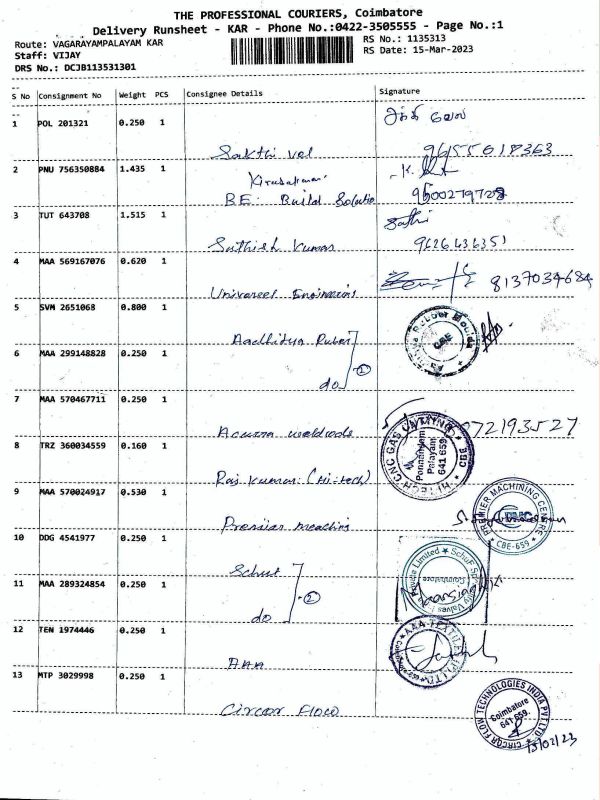 THE PROFESSIONAL COURIERS, Coimbatore
Delivery Runsheet - KAR - Phone No.:0422-3505555 - Page No.:1
Route: VAGARAYAMPALAYAM KAR
RS No.: 1135313
Staff: VIJAY
RS Date: 15-Mar-2023
DRS No.: DCJB113531301
S No Consignment No Weight PCS Consignee Details Signature
1 POL 201321 0.250 1 சக்தி வேல்
Sakthi vel 9655618363
2 PNU 756350884 1.435 1 Kirubakumar K.
BE: Build Solutio 9500279728
3 TUT 643708 1.515 1 Sathi
Sathish Kumar 9626436351
4 MAA 569167076 0.620 1 8137034684
Universel Engineering
5 SVM 2651068 0.800 1
Aadhitya Rubar
Rubber Moulds
CBE
6 MAA 299148828 0.250 1
do ②
7 MAA 570467711 0.250 1
Acurra worldwide 072193527
8 TRZ 360034559 0.160 1
HI-TECH CNC GAS CUTTING
Ponnandam
Palayam
641 659
CBE
Raj kumar (Hi-tech)
9 MAA 570024917 0.530 1
Premiier meaching
PREMIER MACHINING CENTRE
PMC
CBE-659
10 DDG 4541977 0.250 1
Schuf
Private Limited ★ Schuf Speciality Valves India
Coimbatore
11 MAA 289324854 0.250 1
do ②
12 TEN 1974446 0.250 1
AAA
AAA TEXTILE
PVT. LTD.
13 MTP 3029998 0.250 1
Circor Flow
CIRCOR FLOW TECHNOLOGIES INDIA PVT.LTD.
Coimbatore
641 659.
15/02/23